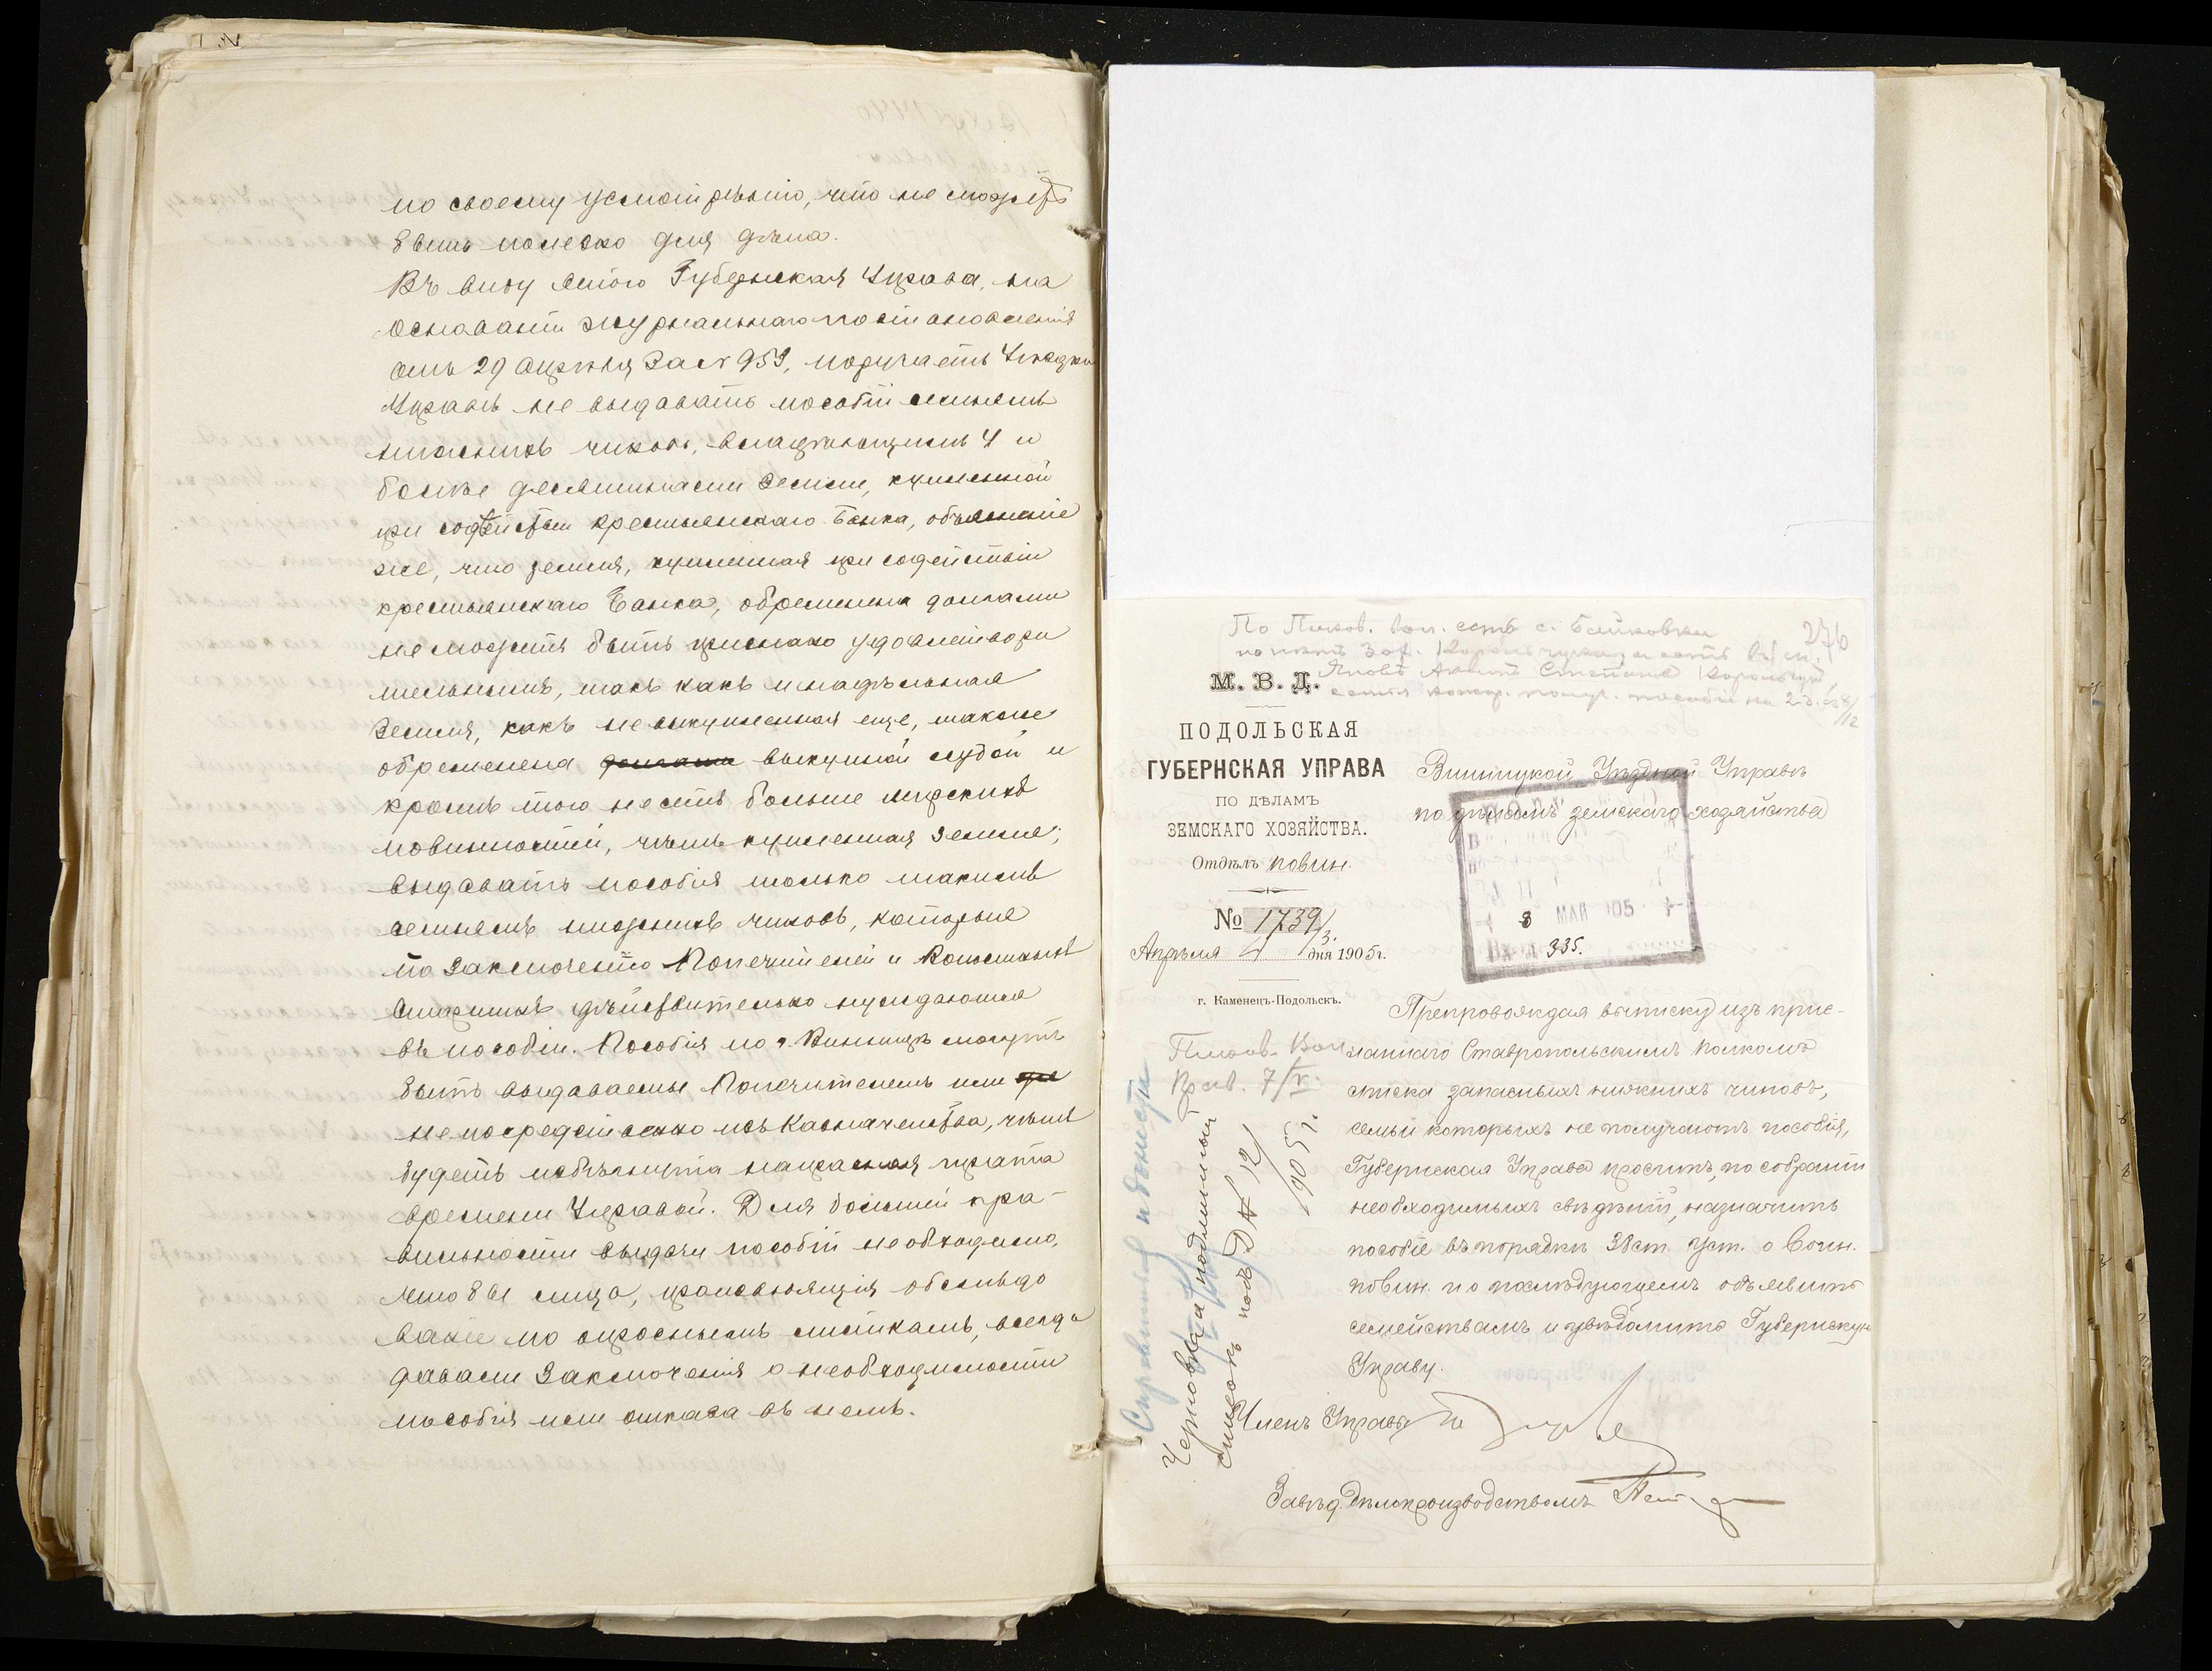 по своему усмотрѣнію, что не можетъ
быть полезно для дѣла.
Въ виду этого Губернская Управа, на
основаніи журнальнаго постановленія
отъ 29 апрѣля за № 959, поручаетъ Уѣздной
Управѣ не выдавать пособій семьямъ
нижнихъ чиновъ, владѣющимъ 4 и
болѣе десятинами земли, купленной
при содѣйствіи крестьянскаго Банка, объясненіе
же, что земля, купленная при содѣйствіи
крестьянскаго Банка, обременена долгами
не можетъ быть признано удовлетвори
тельнымъ, такъ какъ и надѣльная
земля, какъ не выкупленная еще, также
обременена долгами выкупной ссудой и
кромѣ того несетъ больше мірскихъ
повинностей, чѣмъ купленная земля;
выдавать пособія только такимъ
семьямъ нижнихъ чиновъ, которые
по заключенію Попечителей и Волостныхъ
старшинъ дѣйствительно нуждаются
въ пособіи. Пособія по г. Винницѣ могутъ
быть выдаваемы Попечителемъ или
непосредственно изъ Казначейства, чѣмъ
будетъ избѣгнута напрасная трата
времени Управой. Для большей пра-
вильности выдачи пособій необходимо,
чтобы лица, производящія обслѣдо
ваніе по опроснымъ листкамъ, всегда
давали заключенія о необходимости
пособія или отказа въ немъ.
По Пиков. вол. есть с. Байковка
276
М. В. Д.
ПОДОЛЬСКАЯ
ГУБЕРНСКАЯ УПРАВА
ПО ДѢЛАМЪ
ЗЕМСКАГО ХОЗЯЙСТВА.
Отдѣлъ повин.
№ 1739/3.
Апрѣля 4 дня 1905 г.
г. Каменецъ-Подольскъ.
Винницкой Уѣздной Управѣ
по дѣламъ земскаго хозяйства
8 МАЯ 905
Вх. № 335.
Пиков. Вол
Прав. 7/V.
Препровождая выписку изъ прис-
ланнаго Ставропольскимъ полкомъ
списка запасныхъ нижнихъ чиновъ,
семьи которыхъ не получаютъ пособія,
Губернская Управа проситъ, по собраніи
необходимыхъ свѣдѣній, назначить
пособіе въ порядкѣ 38 ст. Уст. о Воин.
повин. и о послѣдующемъ объявить
семействамъ и увѣдомить Губернскую
Управу.
Членъ Управы
Завѣд. Дѣлопроизводствомъ
Черновка подлинный
списокъ подъ Д № 12
1905 г.